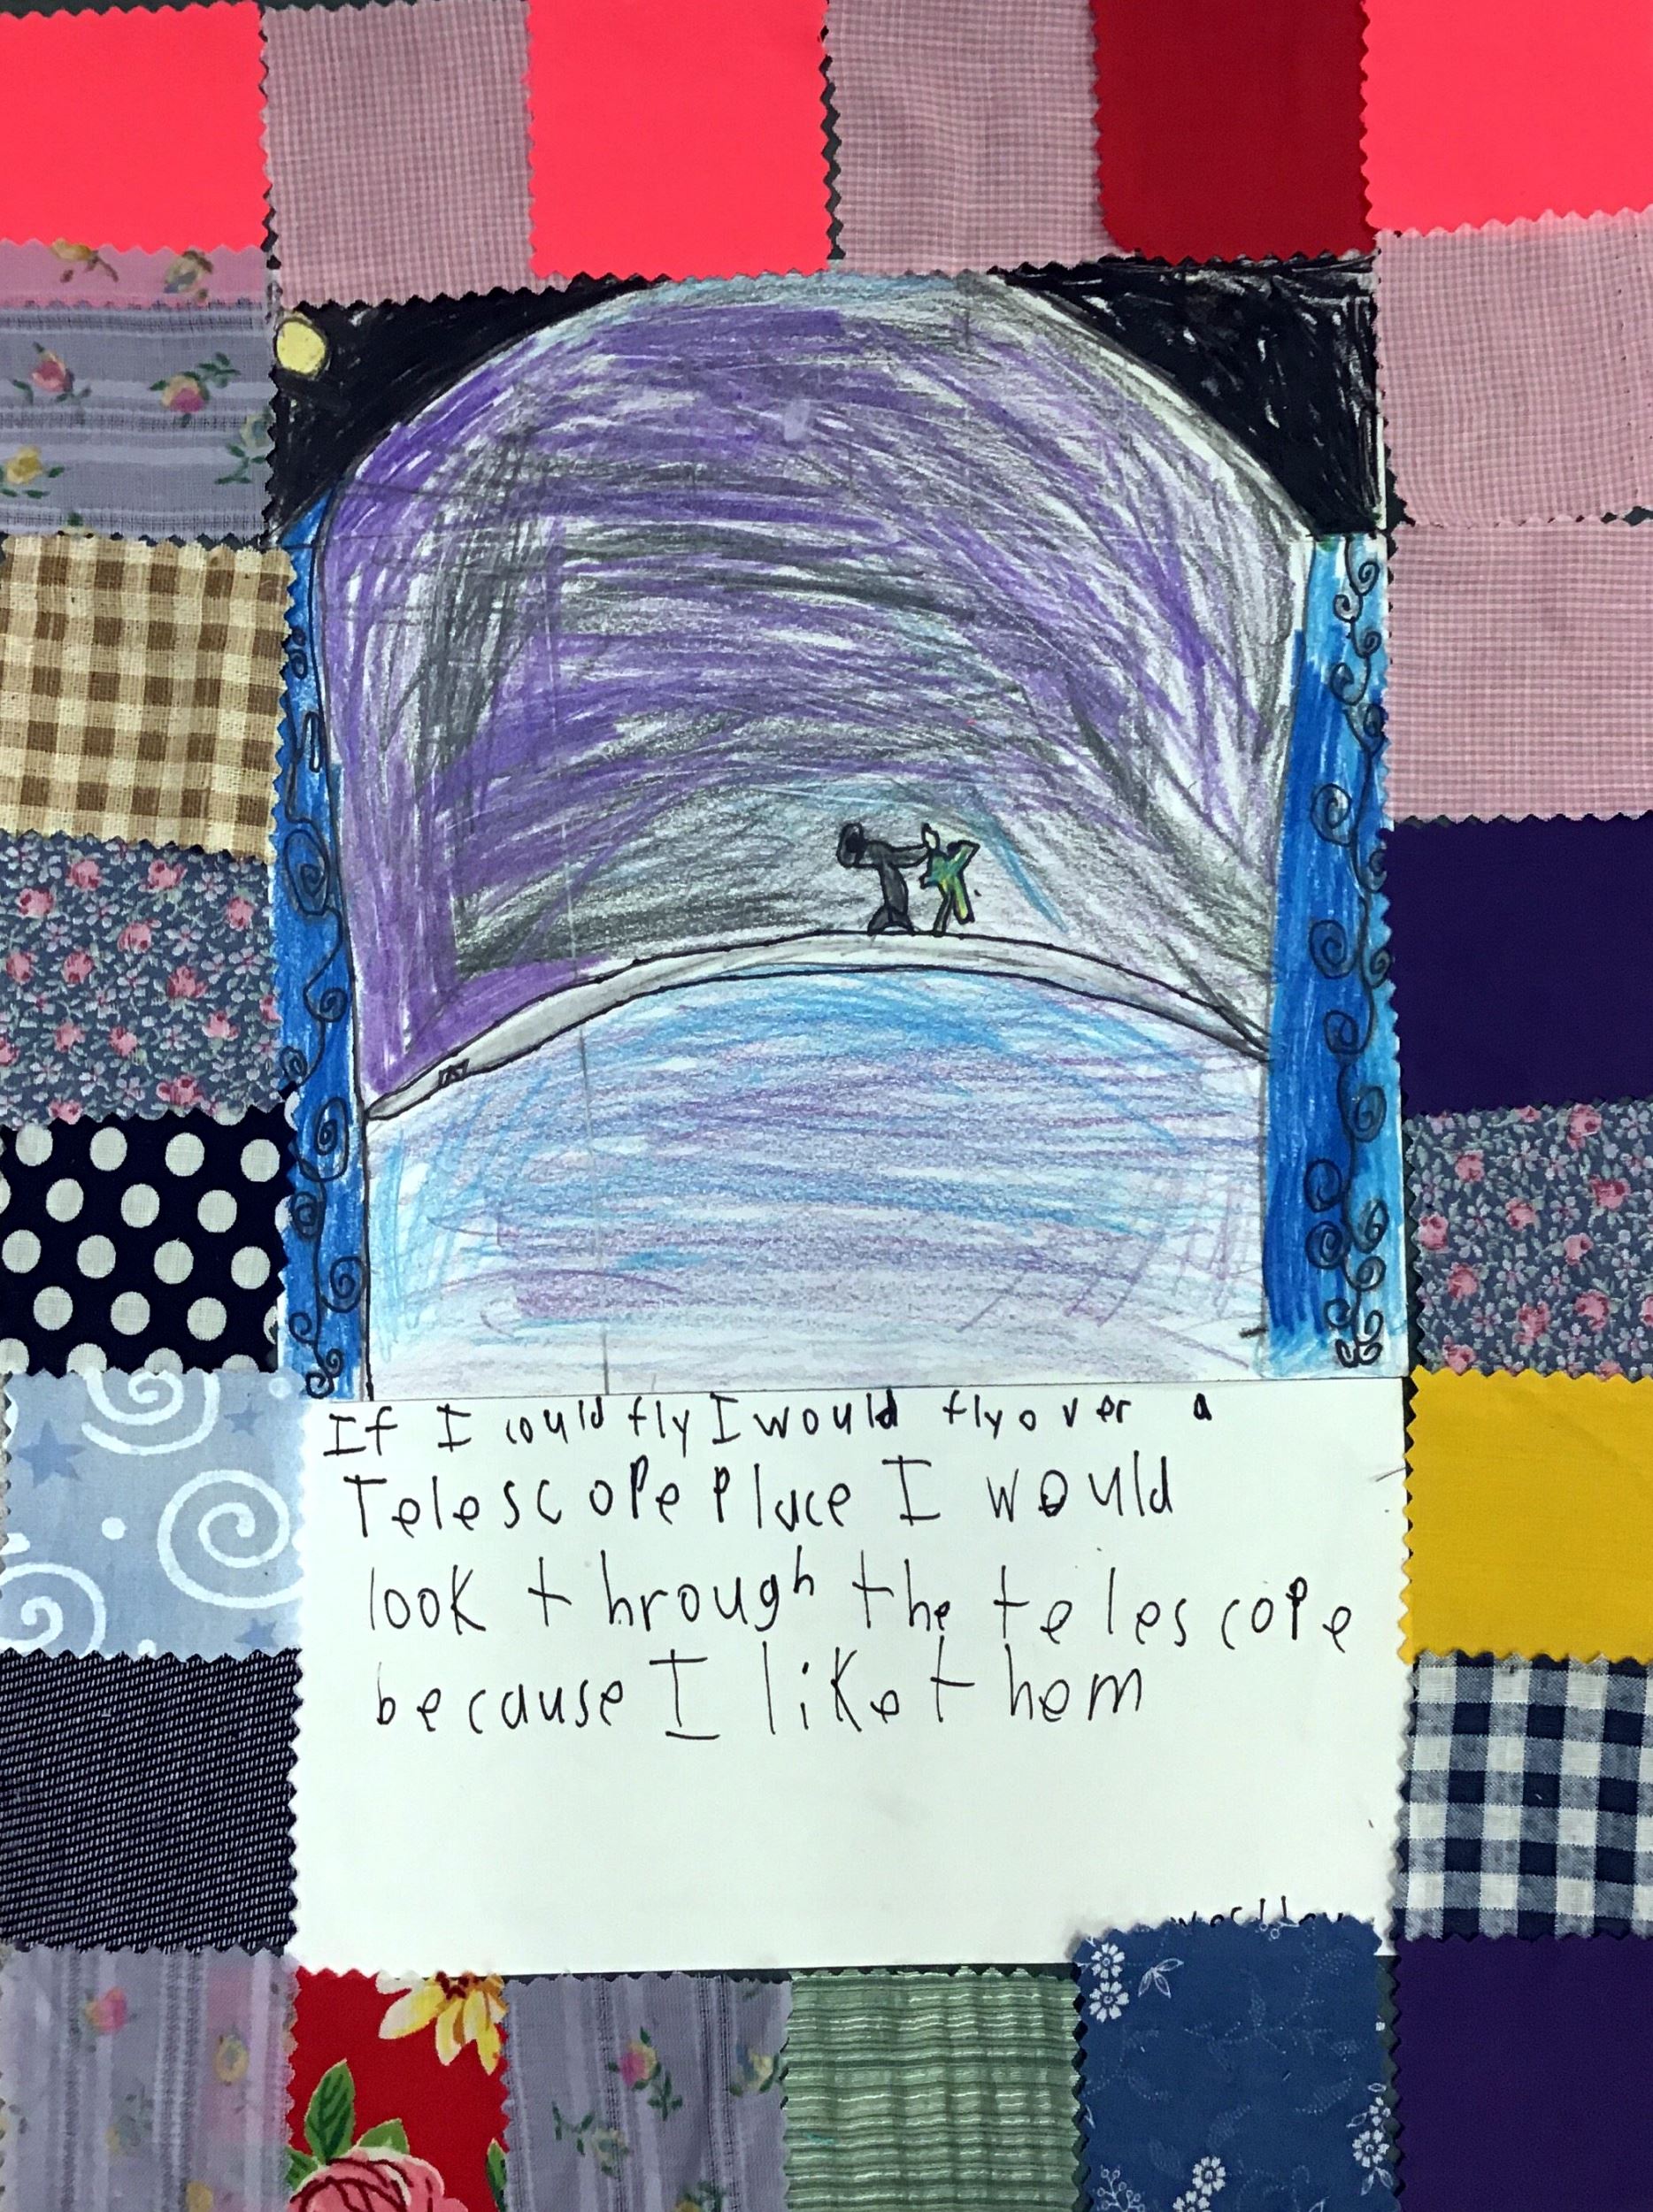 If I could fly I would fly over a
Telescope Place I would
look through the telescope
because I like them